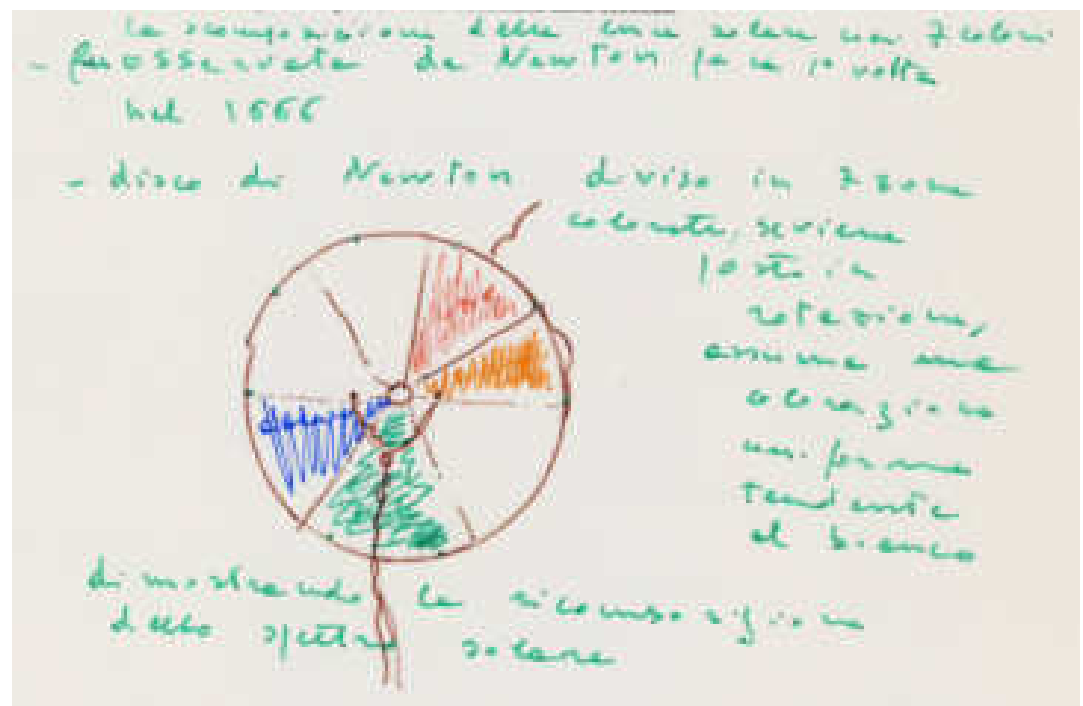 la scomposizione della luce solare nei 7 colori
- fu osservata da Newton per la 1a volta
nel 1666
- disco di Newton diviso in 7 zone
colorate, se viene
posto in
rotazione,
assume una
colorazione
uniforme
tendente
al bianco
dimostrando la ricomposizione
dello spettro solare